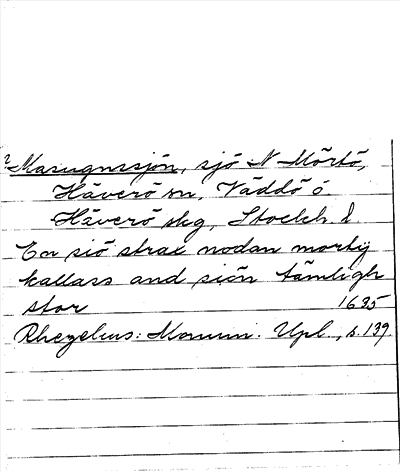 ? Masugnssjön, sjö N Mörtö,
Häverö sn, Väddö ó
Häverö skg, Stockh. l
En siö strax nodan mortö
kallas and siön tämligh
stor 1635
Rhezelius: Monum. Upl., s. 139